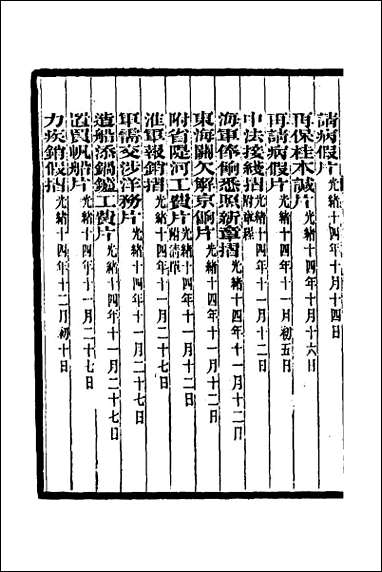 請病假片光緒十四年十月十四日
再保桂本誠片光緒十四年十月十六日
再請病假片光緒十四年十一月初五日
中法接綫摺附章程光緒十四年十一月十二日
海軍俸餉悉照新章摺光緒十四年十一月十二日
東海關欠解京餉片光緒十四年十一月十二日
附省隄河工費片附清單光緒十四年十一月十二日
淮軍報銷摺光緒十四年十一月二十七日
軍需交涉洋務片光緒十四年十一月二十七日
造船添鍋鑪工費片光緒十四年十一月二十七日
造買帆船片光緒十四年十一月二十七日
力疾銷假摺光緒十四年十二月初十日